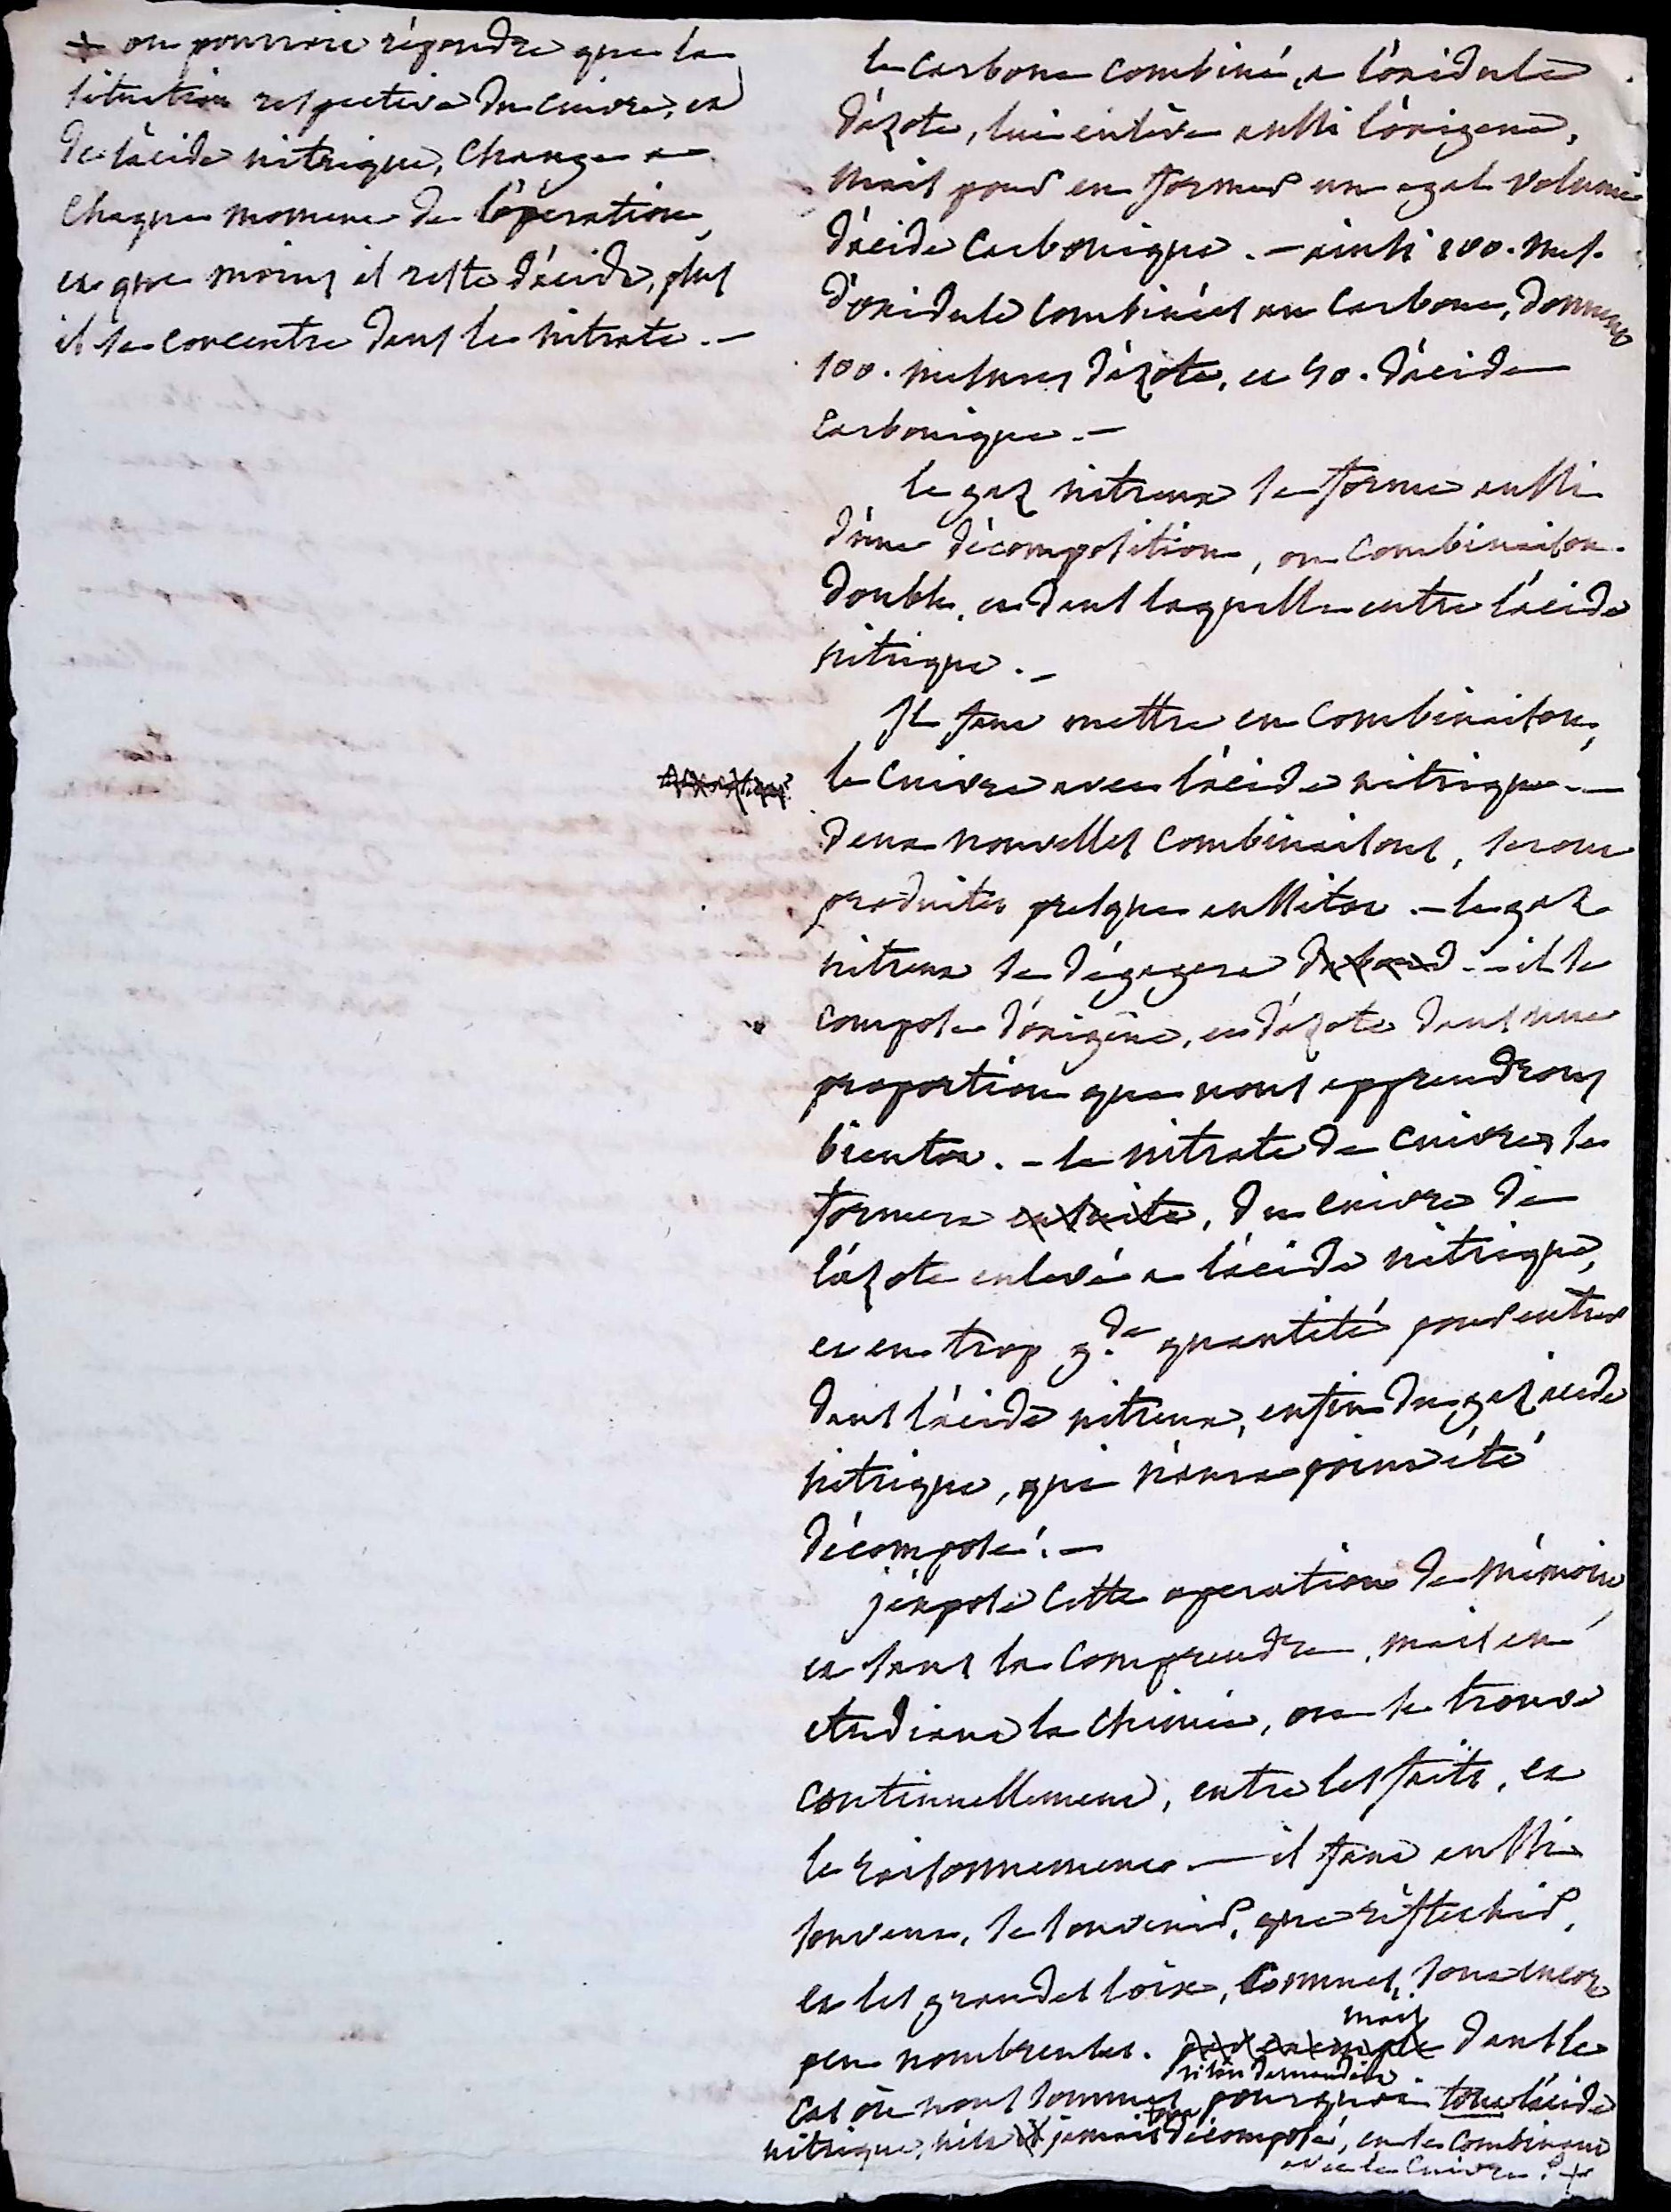 + on pourroit répondre que la
situation respective du cuivre, et
de l'acide nitrique, change a
chaque moment de l'opération,
et que moins il reste d'acide, plus
il se concentre dans le nitrate. —
le carbone combiné, a l'oxidule
d'azote, lui enlève aussi l'oxigene,
mais pour en former un egal volume
d'acide carbonique. — ainsi 100. mes.
d'oxidule combinées au carbone, donnent
100. mesures d'azote, et 50. d'acide
carbonique. —
le gaz nitreux se forme aussi
d'une décomposition, ou combinaison
double, et dans laquelle entre l'acide
nitrique. —
Il faut mettre en combinaison,
le cuivre avec l'acide nitrique. —
deux nouvelles combinaisons, seront
produites presque aussitot. — le gaz
nitreux se dégagera d'abord. — il se
compose d'oxigène, et d'azote dans une
proportion que nous apprendrons
bientot. — le nitrate de cuivre, se
formera ensuite, du cuivre de
l'azote enlevé a l'acide nitrique,
et en trop g.de quantité pour entrer
dans l'acide nitreux, enfin du gaz acide
nitrique, qui n'aura point été
décomposé. —
j'expose cette operation de mémoire
et sans la comprendre, mais en
etudiant la chimie, on se trouve
continuellement, entre les faits, et
le raisonnement — il faut aussi
souvent, se souvenir, que réfléchir,
et les grandes loix, connues, sont encore
peu nombreuses. par exemple mais dans le
cas où nous sommes si l'on demandoit pourquoi tout l'acide
nitrique, n'est jamais tout décomposé, en le combinant
avec le cuivre ? +